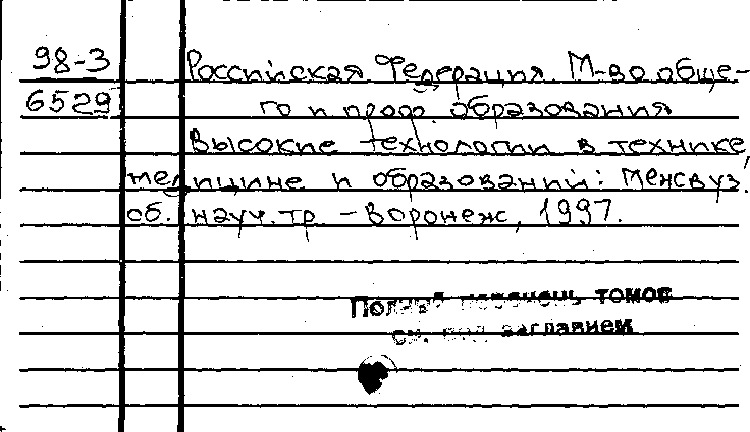 98-3 Российская Федерация. М-во обще-
6529 го и проф. образования
Высокие технологии в технике,
медицине и образовании: Межвуз.
сб. науч. тр. - Воронеж, 1997.
Полный перечень томов
см. под заглавием